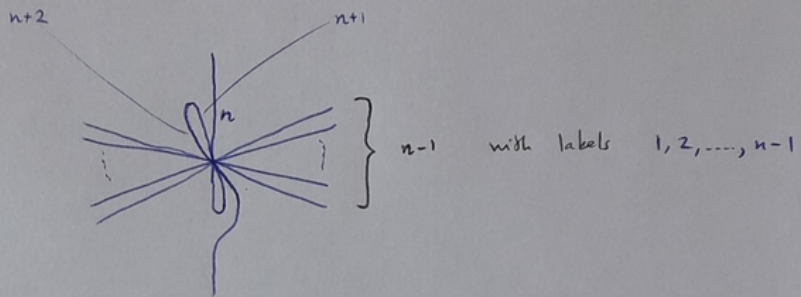 n+2 n+1
n
n-1 with labels 1, 2, ...., n-1